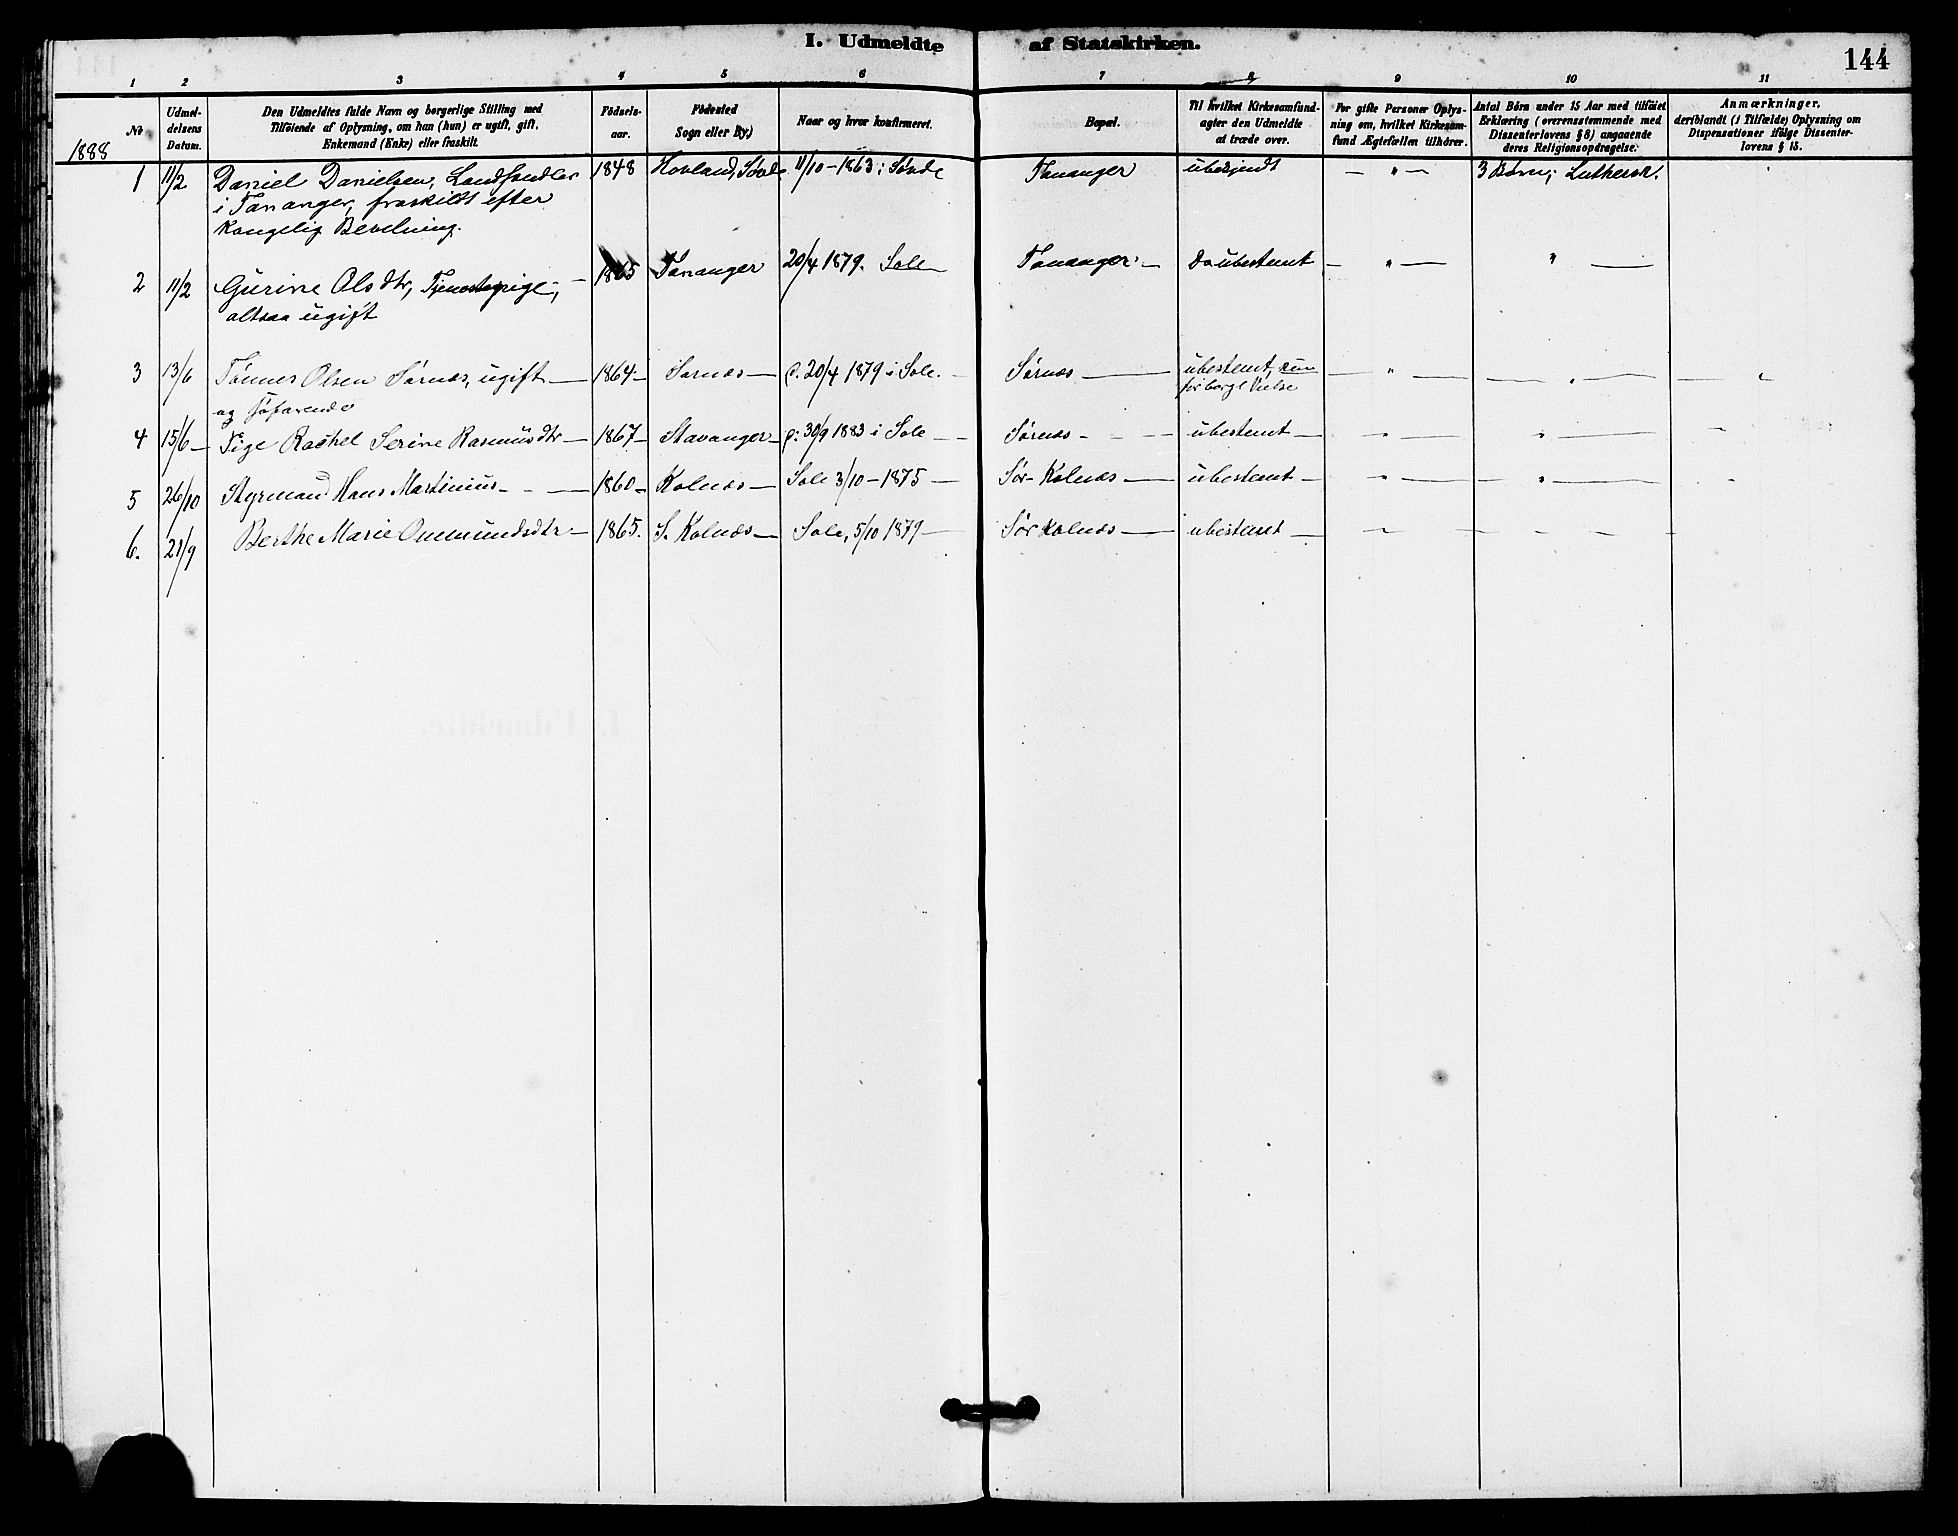 I. Udmeldte af Statskirken.
144
1 2 3 4 5 6 7 8 9 10 11
No
Udmeldelsens Datum.
Den Udmeldtes fulde Navn og borgerlige Stilling med
Tilföiende af Oplysning, om han (hun) er ugift, gift,
Enkemand (Enke) eller fraskilt.
Födselsaar.
Födested
Sogn eller By.)
Naar og hvor konfirmeret.
Bopæl.
Til hvilket Kirkesamfund
agter den Udmeldte
at træde over.
For gifte Personer Oplysning om, hvilket Kirkesamfund Ægtefællen tilhörer.
Antal Börn under 15 Aar med tilföiet
Erklæring (overensstemmende med
Dissenterlovens § 8) angaaende
deres Religionsopdragelse.
Anmærkninger,
deriblandt (i Tilfælde) Oplysning om
Dispensationer ifölge Dissenterlovens § 15.
1888
1 11/2 Daniel Danielsen, Landhandler 1848 Hovland, Sovde 11/10 - 1863 i Sovde Tananger ubekjendt — " — 3 Børn; Luthersk.
i Tananger, fraskildt efter
Kongelig Bevilning.
2 11/2 Gurine Olsdtr, Tjenestepige, — 1865 Tananger 20/4 1879. Sole Tananger — Do ubestemt — " — " —
altsaa ugift
3 13/6 Tønnes Olsen Sørnæs, ugift — 1864 — Sørnæs — 20/4 1879 i Sole. — Sørnæs — ubestemt, kun — " — — " — — " —
og Søfarende
for borgl Vielse
4 15/6 — Pige Rachel Serine Rasmusdtr — 1867 — Stavanger — 30/9 1883 i Sole — Sørnæs - - - ubestemt — " — " —
5 26/10 Styrmand Hans Martinius — 1860 — Kolnæs — Sole 3/10 - 1875 — Sør-Kolnæs — ubestemt — " — " —
6. 21/9 Berthe Marie Ommundsdtr — 1865. S. Kolnæs — Sole, 5/10 1879 — Sør Kolnæs — ubestemt — — —